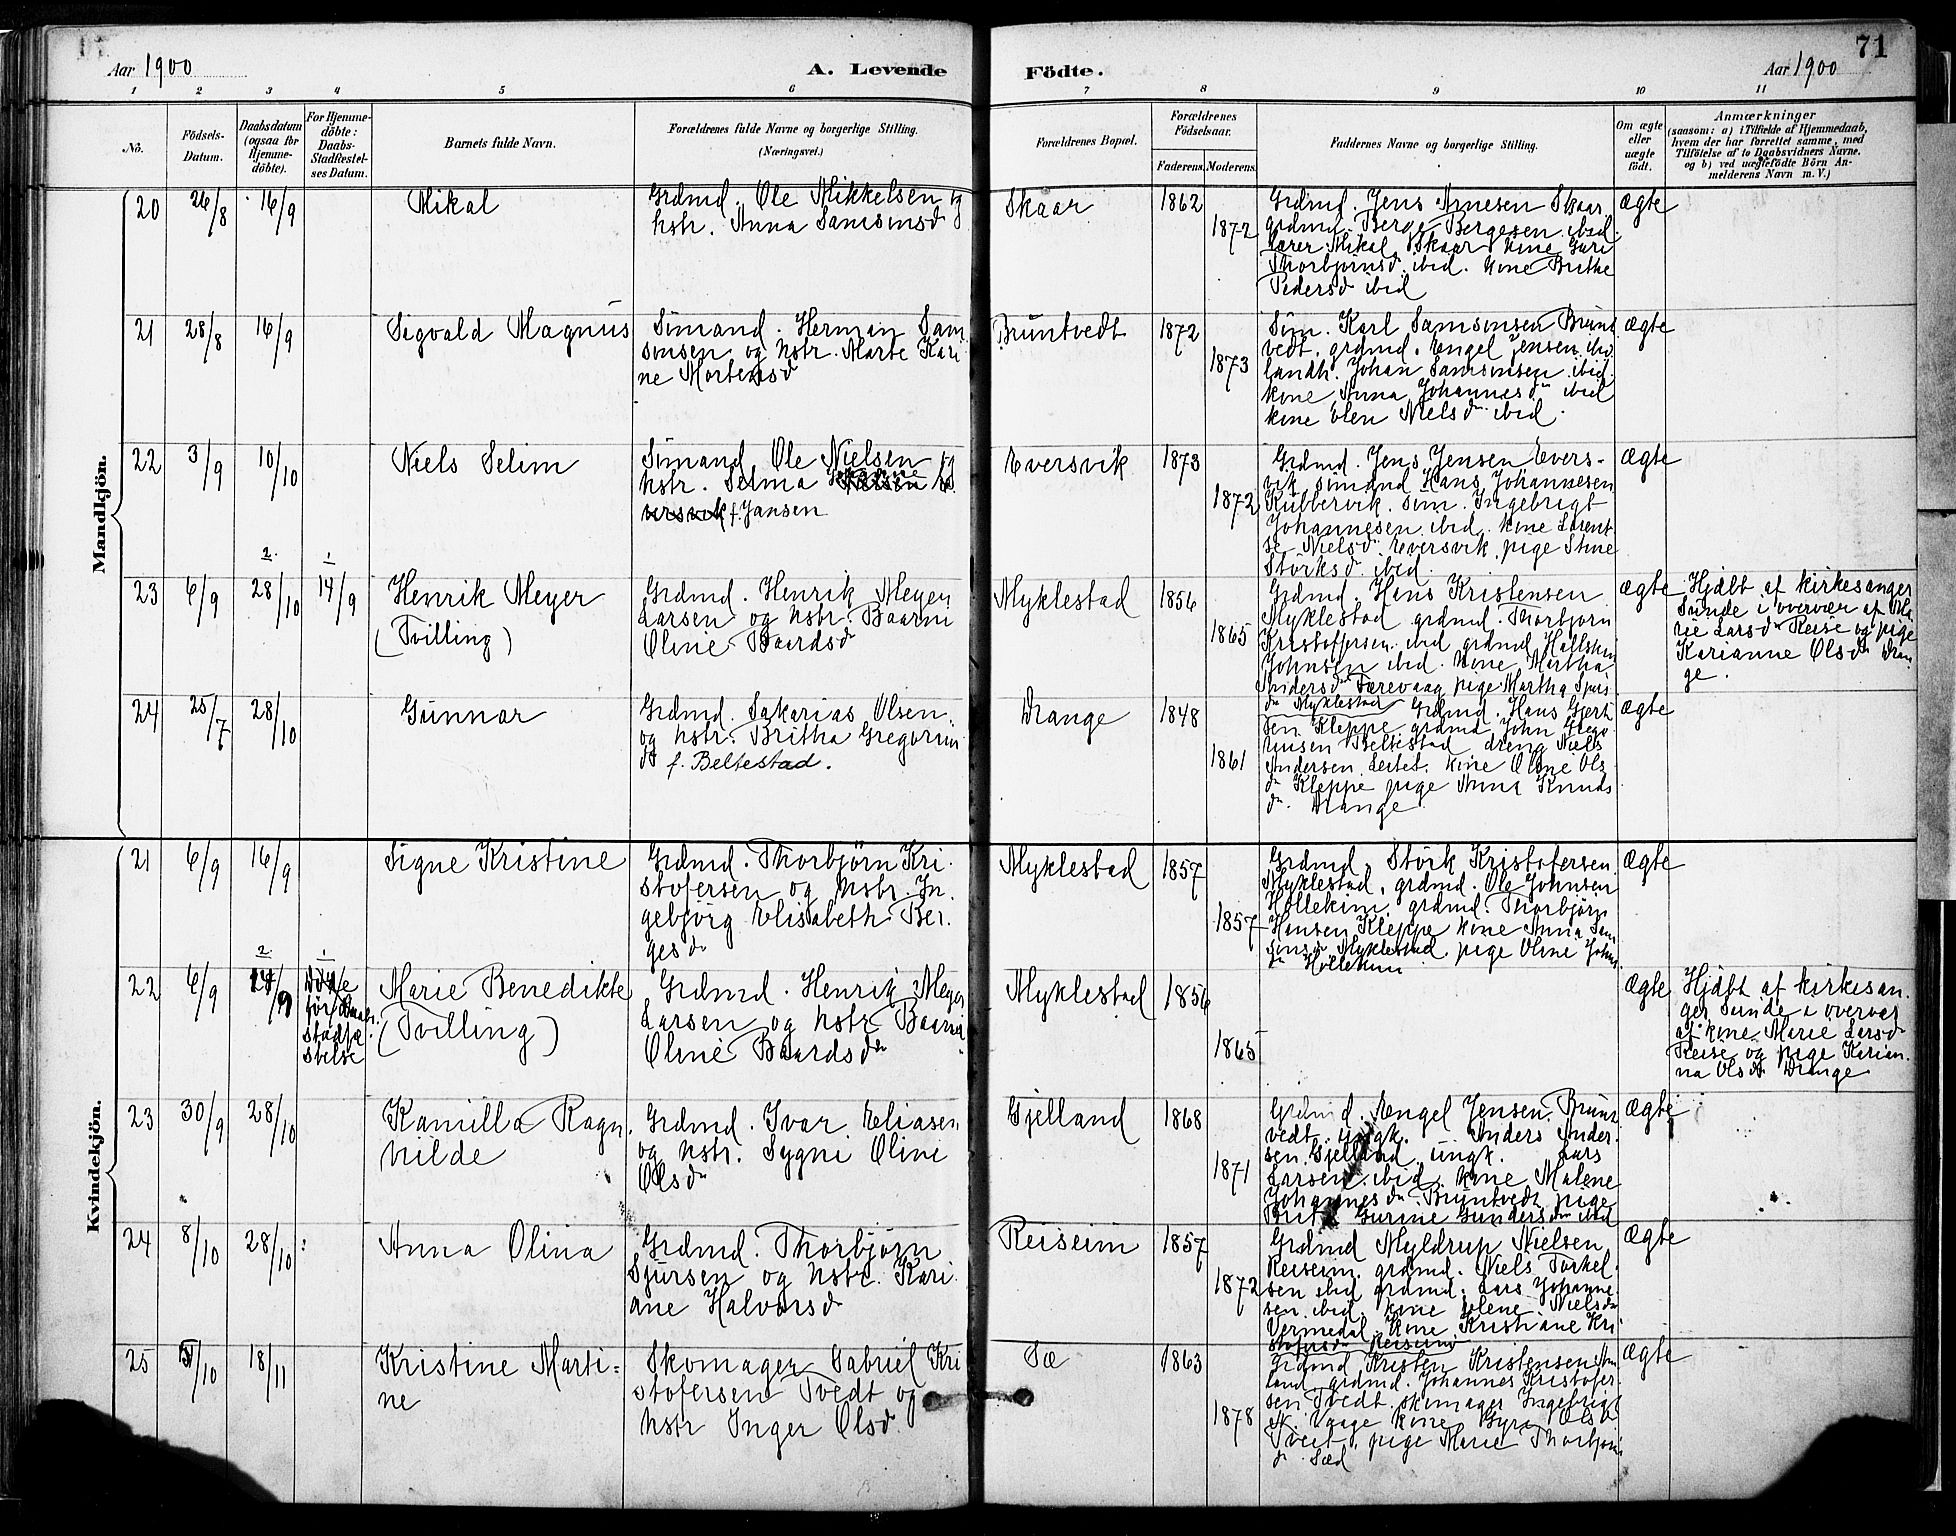 71
Aar 1900
A. Levende
Födte.
Aar 1900
1 2 3 4 5 6 7 8 9 10 11
No.
Födsels-
Datum.
Daabsdatum
(ogsaa for
Hjemme-
döbte).
For Hjemme-
döbte:
Daabs-
Stadfæstel-
ses Datum.
Barnets fulde Navn.
Forældrenes fulde Navne og borgerlige Stilling.
(Næringsvei.)
Forældrenes Bopæl.
Forældrenes
Födselsaar.
Faderens.
Moderens.
Faddernes Navne og borgerlige Stilling.
Om ægte
eller
uægte
födt.
Anmærkninger
(saasom: a) i Tilfælde af Hjemmedaab,
hvem der har forrettet samme, med
Tilföielse af to Daabsvidners Navne.
og b) ved uægtefödte Börn An-
melderens Navn m. V.)
Mandkjön.
20
26/8
16/9
Mikal
Grdmd. Ole Mikkelsen og
hstr. Anna Samsonsd
Skaar
1862
1872
Grdmd. Jens Arnesen Skaar
grdmd. Berge Bergesen ibid.
Lærer Mikal Skaar kone Guri
Thorbjørnsd. ibid. kone Brithe
Pedersd ibid
ægte
21
28/8
16/9
Sigvald Magnus
Sømand. Herman Sam
sonsen og hstr. Marte Kari
ne Mortensd
Bruntvedt
1872
1873
Søm. Karl Samsonsen Brunt
vedt, grdmd. Engel Jensen ibid
landh. Johan Samsonsen ibid.
kone Anna Johannesd ibid
kone Olen Nielsd ibid.
ægte
22
3/9
10/10
Niels Selim
Sømand Ole Nielsen og
hstr. Selma
f. Jansen
Eversvik
1873
1872
Grdmd. Jens Jensen Evers-
vik sømand Hans Johannesen
Kubbervik. søm. Ingebrigt
Johannesen ibid. kone Lorent
se Nielsd Eversvik, pige Stine
Størksd ibid.
ægte
23
6/9
2.
28/10
1
14/9
Henrik Meyer
(Tvilling)
Grdmd. Henrik Meyer
Larsen og hstr. Baarni
Oline Baardsd
Myklestad
1856
1865
Grdmd. Hans Kristensen
Myklestad grdmd. Thorbjørn
Kristoffersen ibid grdmd Hallstein
Johnsen ibid. kone Martha
Andersd Færevaag pige Martha
Myklestad
ægte
Hjdbt af kirkesanger
Sunde i overvær af Ma
rie Larsd Reise og pige
Karianne Olsd Dran
ge.
24
25/7
28/10
Gunnar
Grdmd. Sakarias Olsen
og hstr. Britha Gregorius
d f. Beltestad.
Drange
1848
1861
Grdmd. Hans Gjert
sen Kleppe grdmd John Grego
riusen Beltestad dreng Niels
Andersen Leitet. kone Oline Ols
d Kleppe pige Anna Knuds
d. Drange
ægte
Kvindekjön.
21
6/9
16/9
Signe Kristine
Grdmd. Thorbjørn Kri
stofersen og hstr. In
gebjørg Elisabeth Ber
gesd
Myklestad
1857
1857
Grdmd. Størk Kristofersen
Myklestad, grdmd. Ole Johnsen
Hollekim, grdmd. Thorbjørn
Hansen Kleppe kone Anna Sam
sonsd Myklestad pige Oline Johns
d Hollekim
ægte
22
6/9
2
1
Døde
før Daabs
stadfæ
stelse
Marie Benedikte
(Tvilling)
Grdmd. Henrik Meyer
Larsen og hstr. Baarni
Oline Baardsd
Myklestad
1856
1865
ægte
Hjdbt af kirkesan
ger Sunde i overvær
af kone Marie Larsd
Reise og pige Karian
na Olsd Drange
23
30/9
28/10
Kamilla Ragn
hilde
Grdmd. Ivar Eliasen
og hstr. Sygni Oline
Olsd
Gjelland
1868
1871
Grdmd. Engel Jensen Brunt
vedt. ungk. Anders Ander
sen Gjelland ungk. Lars
Larsen ibid. kone Malene
Johannesd Bruntvedt pige
Brita Gurine Gundersd ibid
ægte
24
8/10
28/10
Anna Olina
Grdmd. Thorbjørn
Sjursen og hstr. Kari
ane Halvorsd
Reiseim
1857
1872
Grdmd Myldrup Nielsen
Reiseim. grdmd. Niels Torkel
sen ibid grdmd. Lars Johanne
sen ibid. kone Helene Nielsd
Vermedal kone Kristiane Kri
stofersd Reiseim
ægte
25
5/10
18/11
Kristine Marti=
ne
Skomager Gabriel Kri
stofersen Tvedt og
hstr Inger Olsd
Sæ
1863
1878
Grdmd Kristen Kristensen
land grdmd. Johannes Kristofer
sen Tvedt. skomager Ingebrigt
N. Vaage kone Gyra Olsd
Tveit, pige Marie Thorbjørns
d. Sæd
ægte